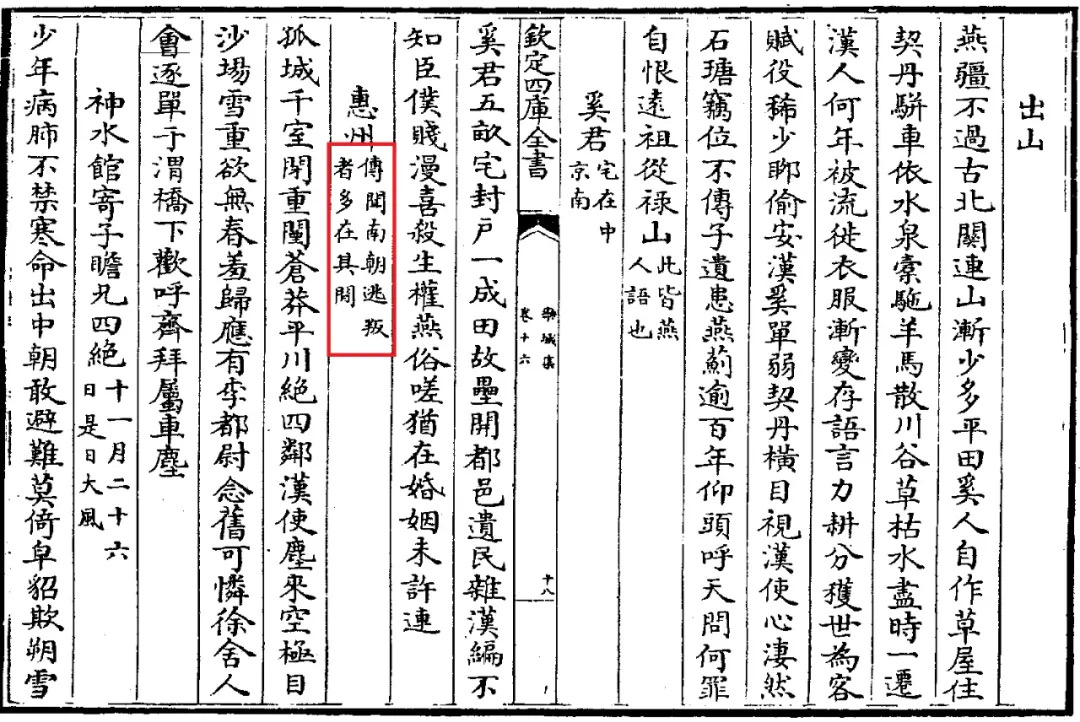 出山
燕疆不過古北關連山漸少多平田奚人自作草屋住
契丹駢車依水泉橐駞羊馬散川谷草枯水盡時一遷
漢人何年被流徙衣服漸變存語言力耕分穫世為客
賦役稀少聊偷安漢奚單弱契丹横目視漢使心淒然
石瑭竊位不傳子遺患燕薊逾百年仰頭呼天問何罪
自恨遠祖從禄山
此皆燕
人語也
奚君
宅在中
京南
欽定四庫全書
欒城集
卷十六
十八
奚君五畝宅封戸一成田故壘開都邑遺民雜漢編不
知臣僕賤漫喜殺生權燕俗嗟猶在婚姻未許連
惠州
傳聞南朝逃叛
者多在其間
狐城千室閉重闉蒼莽平川絶四鄰漢使塵來空極目
沙場雪重欲無春羞歸應有李都尉念舊可憐徐舍人
會逐單于渭橋下歡呼齊拜屬車塵
神水館寄子瞻兄四絶
十一月二十六
日是日大風
少年病肺不禁寒命出中朝敢避難莫倚皁貂欺朔雪